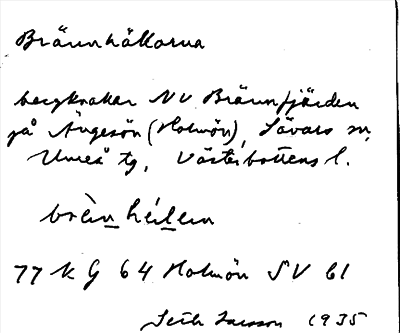 Brännhällorna
bergknakar NV Brännfjärden
på Ängesön (Holmön), Sävars sn,
Umeå tg, Västerbottens l.
brèn héilein
77 K G 64 Holmön SV 61
Seth Larsson 1935